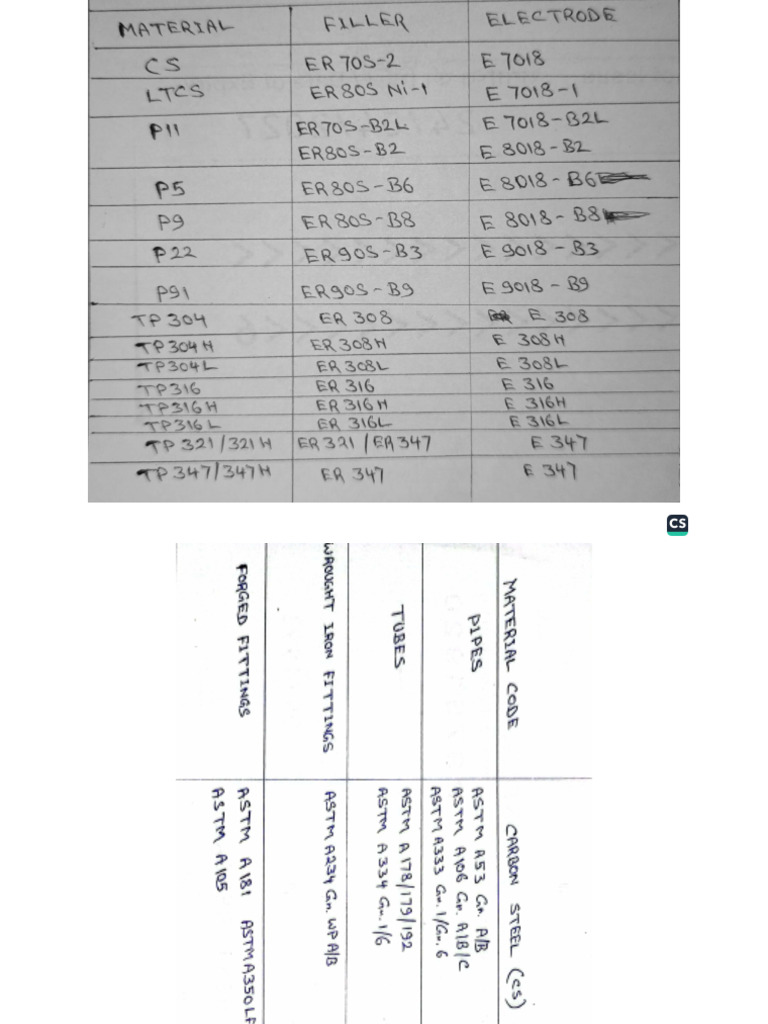 MATERIAL FILLER ELECTRODE
CS ER 70S-2 E 7018
LTCS ER80S Ni-1 E 7018-1
P11 ER70S-B2L E 7018-B2L
ER80S-B2 E 8018-B2
P5 ER80S-B6 E 8018-B6
P9 ER80S-B8 E 8018-B8
P22 ER90S-B3 E 9018-B3
P91 ER90S-B9 E 9018-B9
TP304 ER 308 E 308
TP304H ER 308H E 308H
TP304L ER 308L E 308L
TP316 ER 316 E 316
TP316H ER 316H E 316H
TP316L ER 316L E 316L
TP 321/321H ER321/ER347 E 347
TP347/347H ER 347 E 347
CS
MATERIAL CODE CARBON STEEL (CS)
PIPES ASTM A53 Gr. A/B
ASTM A106 Gr. A/B/C
ASTM A333 Gr. 1/Gr. 6
TUBES ASTM A178/179/192
ASTM A334 Gr. 1/6
WROUGHT IRON FITTINGS ASTM A234 Gr. WPA/B
FORGED FITTINGS ASTM A181 ASTM A350 LF
ASTM A105